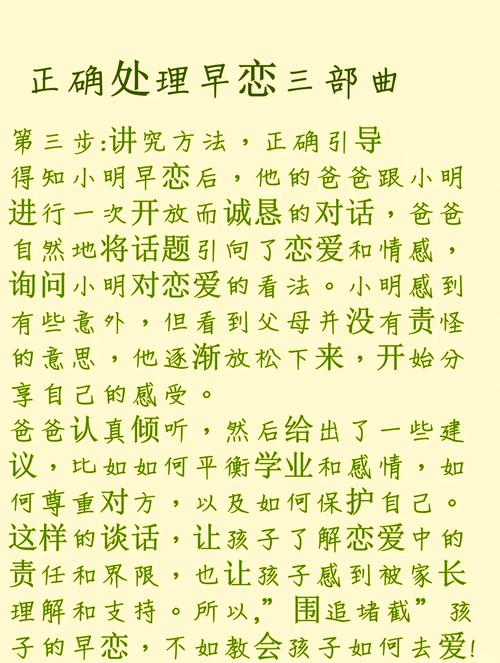 正确处理早恋三部曲
第三步:讲究方法，正确引导
得知小明早恋后，他的爸爸跟小明
进行一次开放而诚恳的对话，爸爸
自然地将话题引向了恋爱和情感，
询问小明对恋爱的看法。小明感到
有些意外，但看到父母并没有责怪
的意思，他逐渐放松下来，开始分
享自己的感受。
爸爸认真倾听，然后给出了一些建
议，比如如何平衡学业和感情，如
何尊重对方，以及如何保护自己。
这样的谈话，让孩子了解恋爱中的
责任和界限，也让孩子感到被家长
理解和支持。所以,”围追堵截”孩
子的早恋，不如教会孩子如何去爱!